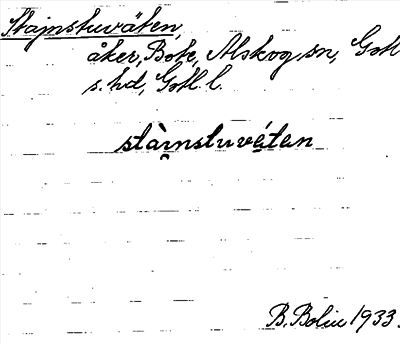 Stajnstuväten,
åker, Bote, Alskog sn, Gotl
s. hd, Gotl. l.
stài̯nstuvé̤tan
B. Bolin 1933.